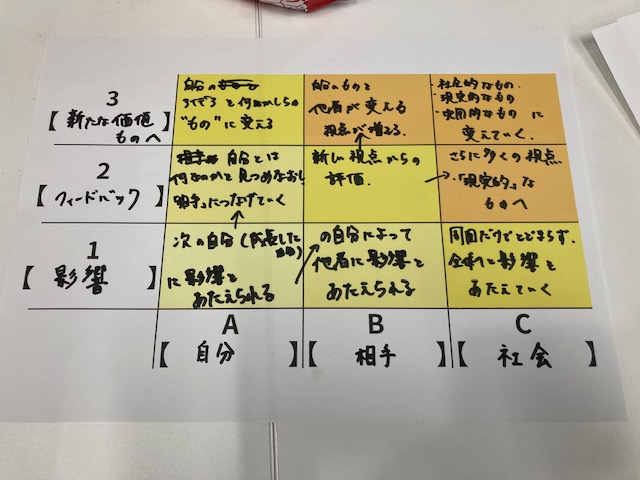 3
【新たな価値
ものへ】
自分の
と何かしらの
"もの"に変える
自分のものを
他者が変える
視点が増える
・社会的なもの
・現実的なもの
・実用的なもの に
変えていく.
2
【フィードバック】
自分とは
何なのかを見つめなおし
相手」につなげていく
新しい視点からの
評価.
さらに多くの視点
→・「現実的」な
ものへ
1
【影響】
次の自分(成長した
自分)
に影響を
あたえられる
の自分によって
他者に影響を
あたえられる
周囲だけでとどまらず.
全体に影響を
あたえていく
A
【自分】
B
【相手】
C
【社会】